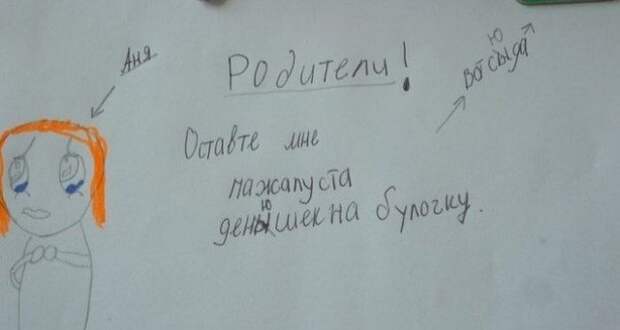 Аня
Родители!
Оставте мне
пажалуста
денюшек на булочку.
вот сюда